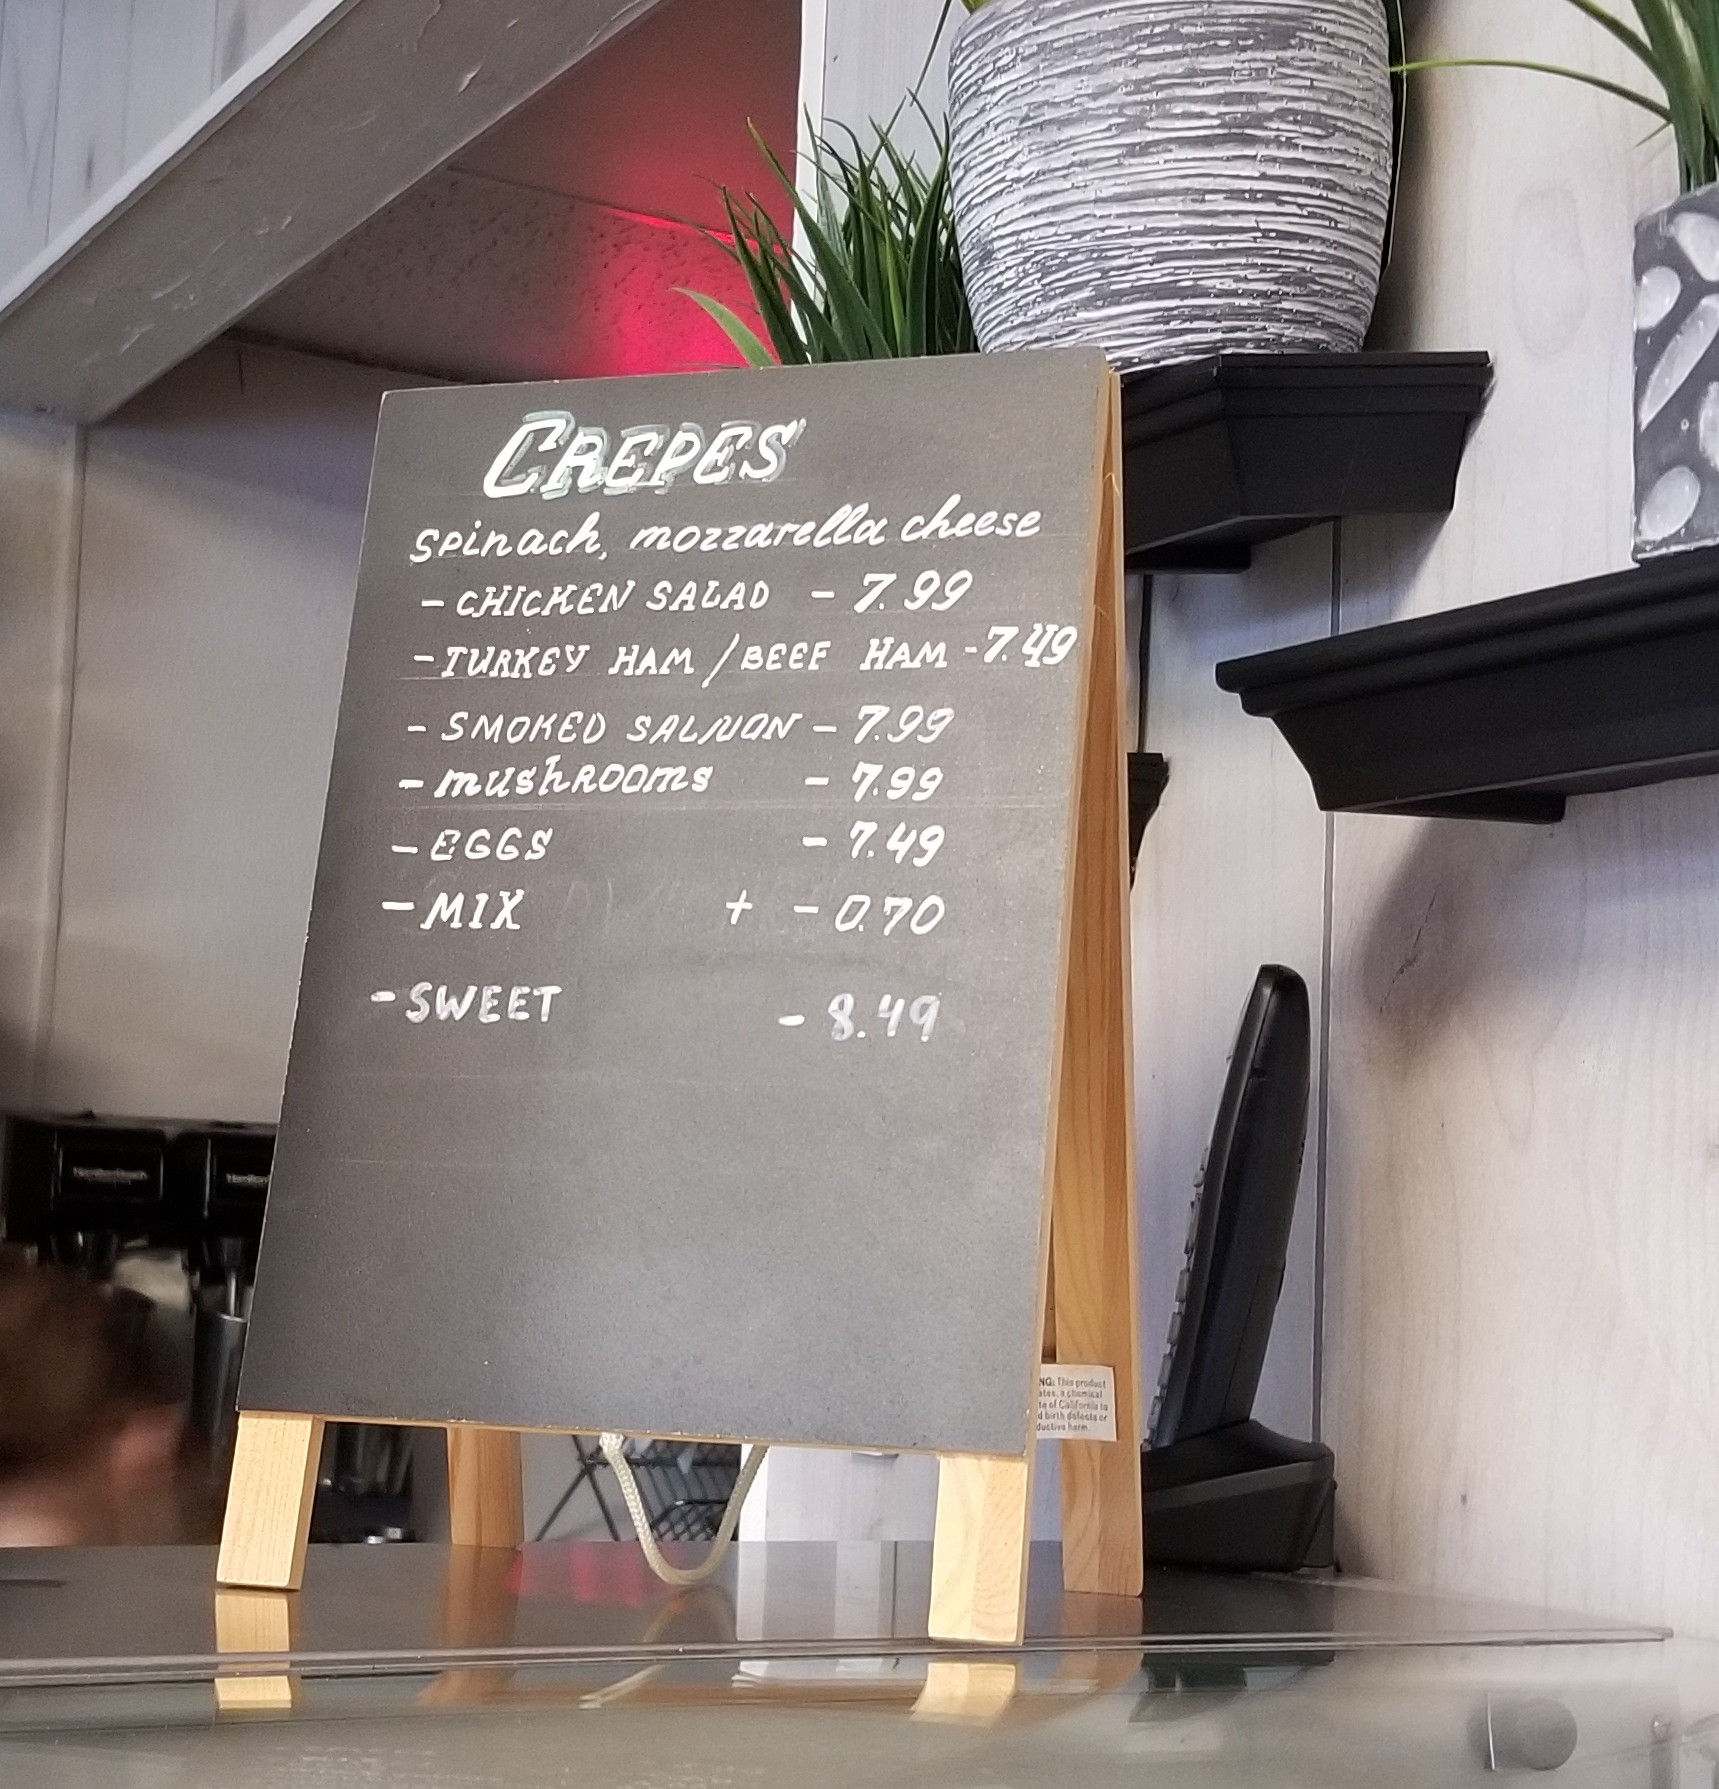 CREPES
spinach, mozzarella cheese
- CHICKEN SALAD - 7.99
- TURKEY HAM / BEEF HAM - 7.49
- SMOKED SALMON - 7.99
- mushrooms - 7.99
- EGGS - 7.49
- MIX + - 0.70
- SWEET - 8.49
NG: This product
ates, a chemical
te of California to
d birth defects or
ductive harm.